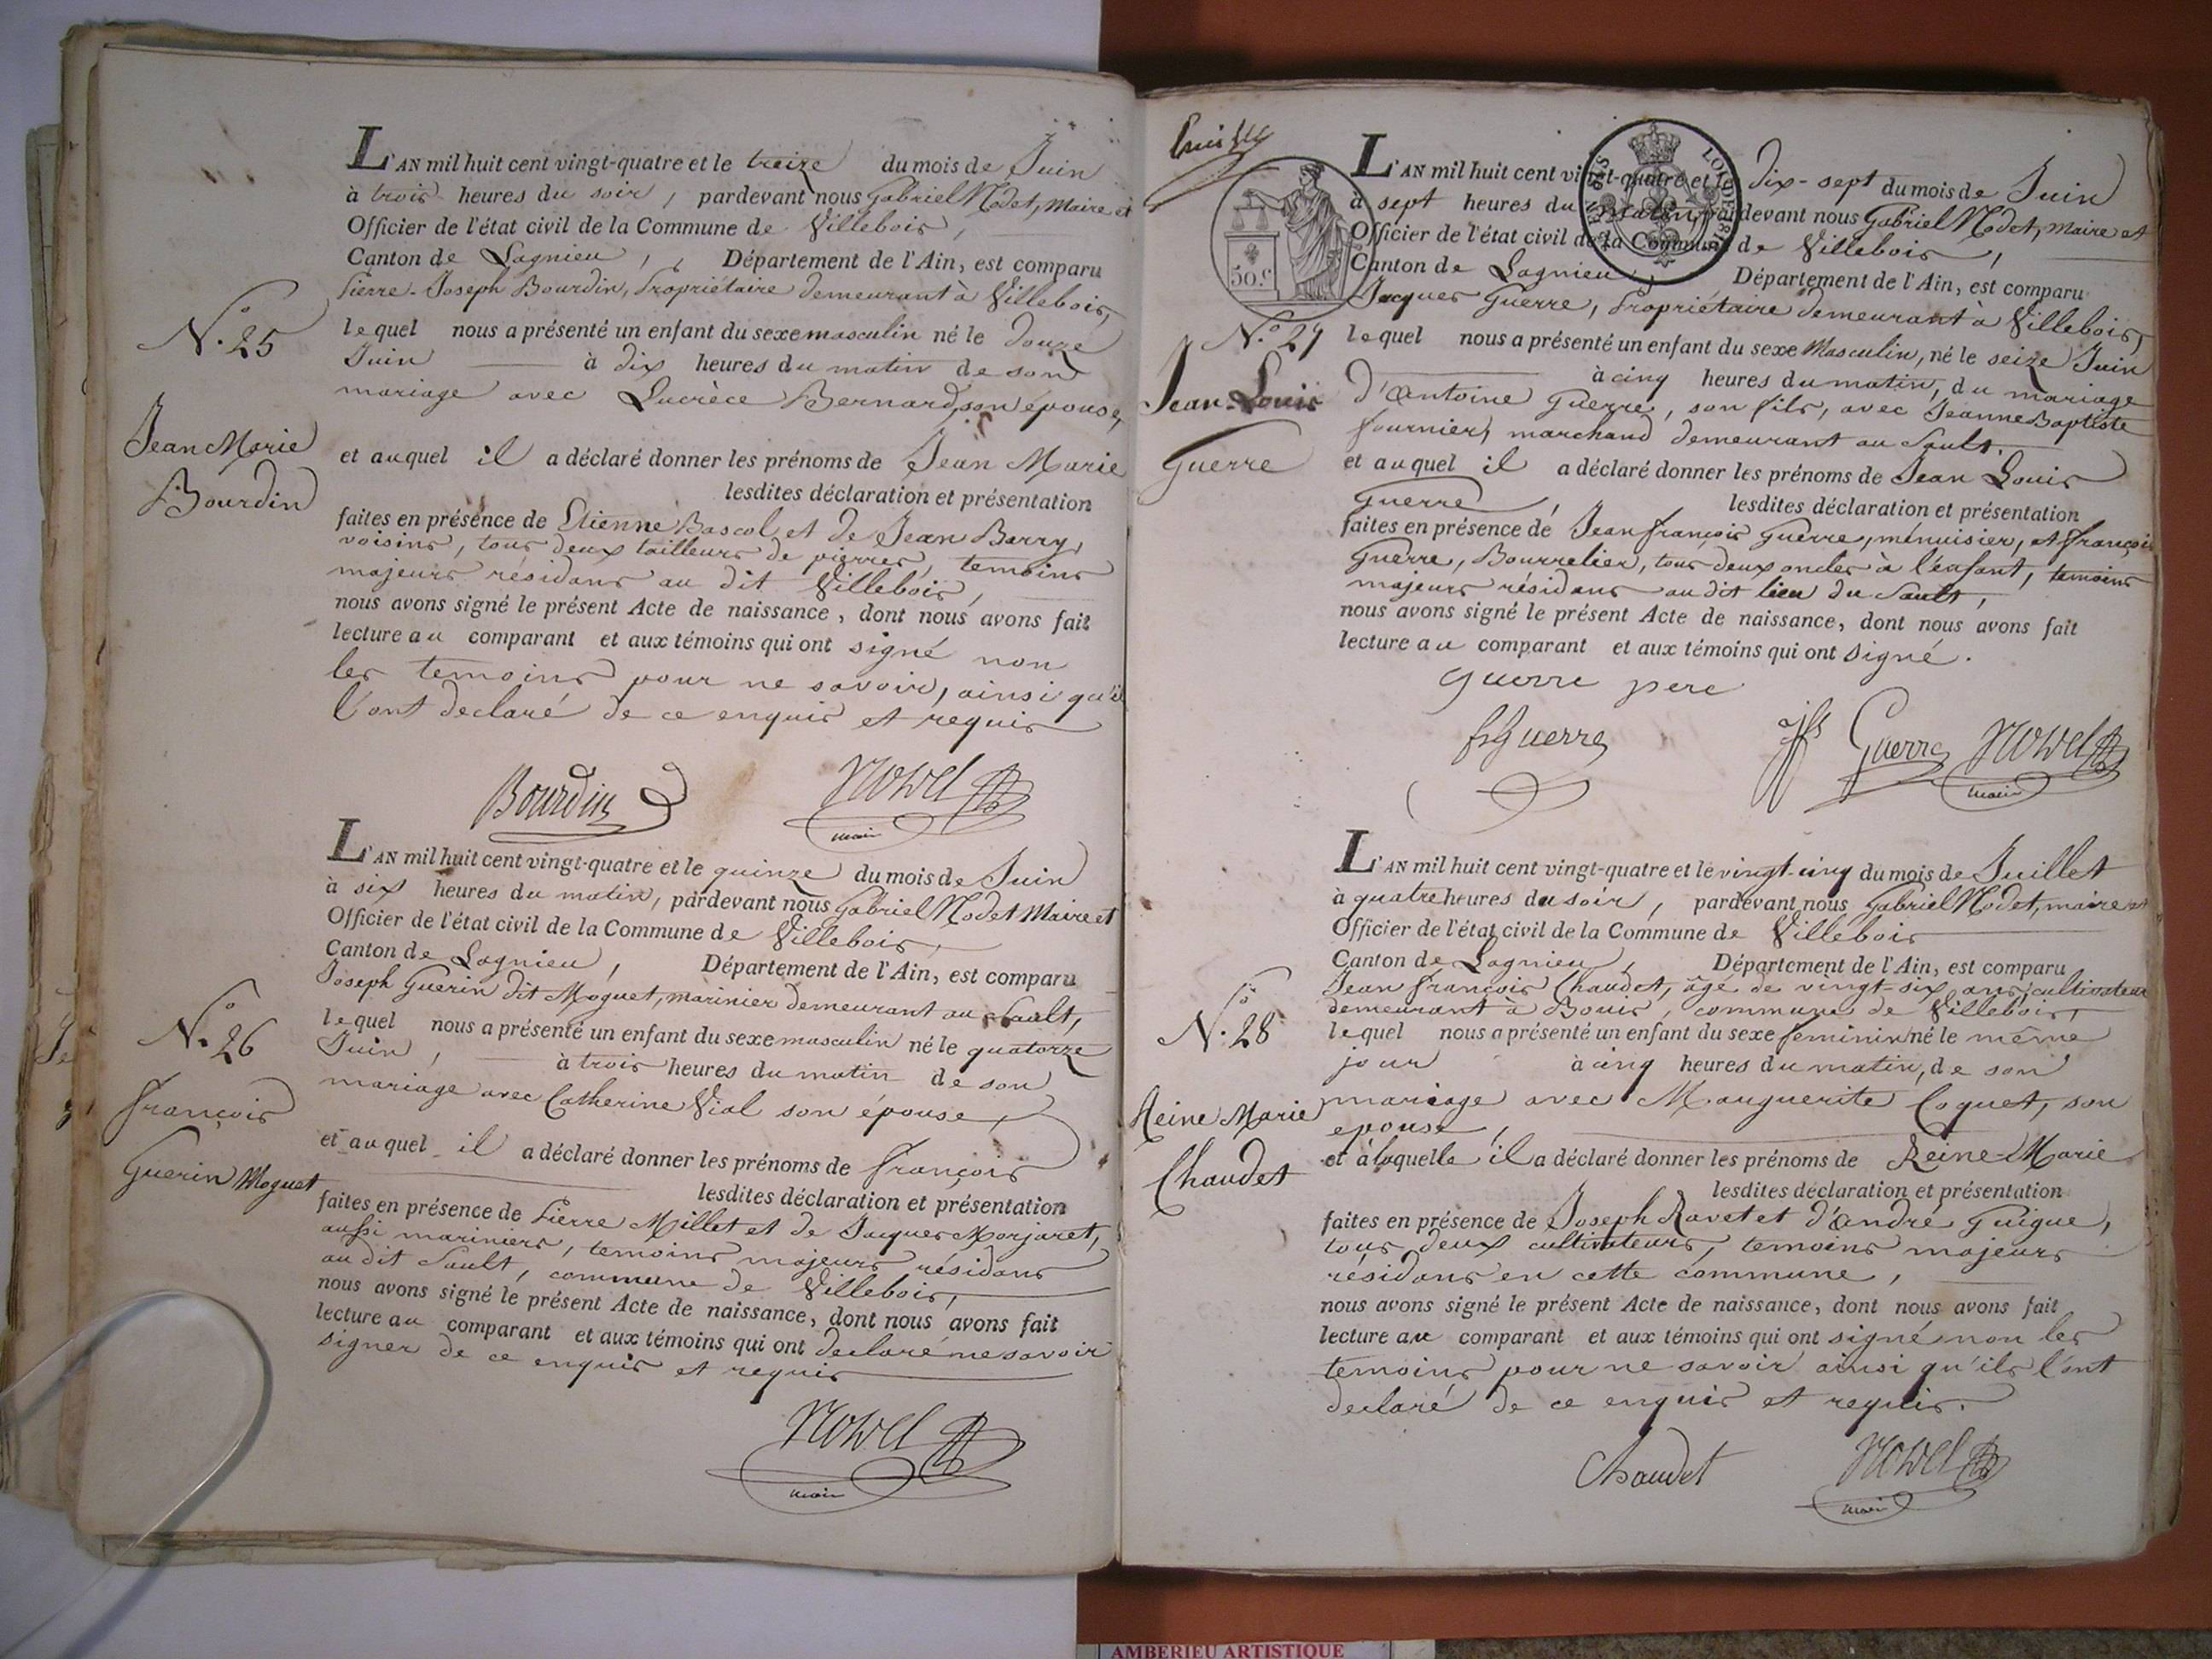 L'AN mil huit cent vingt-quatre et le treize du mois de Juin
à trois heures du soir, pardevant nous Gabriel Modet, Maire et
Officier de l'état civil de la Commune de Villebois,
Canton de Lagnieu, Département de l'Ain, est comparu
Pierre-Joseph Bourdin, Propriétaire demeurant à Villebois,
lequel nous a présenté un enfant du sexe masculin né le douze
Juin à dix heures du matin de son
mariage avec Lucrèce Bernard, son épouse,
et auquel il a déclaré donner les prénoms de Jean Marie
lesdites déclaration et présentation
faites en présence de Etienne Bascol et de Jean Barry,
voisins, tous deux tailleurs de pierres, temoins
majeurs résidans au dit Villebois,
nous avons signé le présent Acte de naissance, dont nous avons fait
lecture au comparant et aux témoins qui ont signé non
les temoins pour ne savoir, ainsi qu'il
l'ont declaré de ce enquis et requis
Bourdin
maire
N.o 25
Jean Marie
Bourdin
L'AN mil huit cent vingt-quatre et le quinze du mois de Juin
à six heures du matin, pardevant nous Gabriel Modet Maire et
Officier de l'état civil de la Commune de Villebois,
Canton de Lagnieu, Département de l'Ain, est comparu
Joseph Guerin dit Moguet, marinier demeurant au Sault,
lequel nous a présenté un enfant du sexe masculin né le quatorze
Juin, à trois heures du matin de son
mariage avec Catherine Vial son épouse,
et auquel il a déclaré donner les prénoms de François
lesdites déclaration et présentation
faites en présence de Pierre Millet et de Jacques Morjaret,
aussi mariniers, temoins majeurs résidans
au dit Sault, commune de Villebois,
nous avons signé le présent Acte de naissance, dont nous avons fait
lecture au comparant et aux témoins qui ont declaré ne savoir
signer de ce enquis et requis
maire
N.o 26
François
Guerin Moguet
L'AN mil huit cent vingt-quatre et le dix-sept du mois de Juin
à sept heures du matin, pardevant nous Gabriel Modet, Maire et
Officier de l'état civil de la Commune de Villebois,
Canton de Lagnieu, Département de l'Ain, est comparu
Jacques Guerre, Propriétaire demeurant à Villebois,
lequel nous a présenté un enfant du sexe Masculin, né le seize Juin
à cinq heures du matin, du mariage
d'Antoine Guerre, son fils, avec Jeanne Baptiste
fournier, marchand demeurant au Sault.
et auquel il a déclaré donner les prénoms de Jean Louis
Guerre, lesdites déclaration et présentation
faites en présence de Jean françois Guerre, ménuisier, et françois
Guerre, Bourrelier, tous deux oncles à l'enfant, temoins
majeurs résidans au dit lieu du Sault,
nous avons signé le présent Acte de naissance, dont nous avons fait
lecture au comparant et aux témoins qui ont signé.
guerre pere
fs Guerre
Guerre
maire
50.c
N.o 27
Jean-Louis
Guerre
L'AN mil huit cent vingt-quatre et le vingt-cinq du mois de Juillet
à quatre heures du soir, pardevant nous Gabriel Modet, maire et
Officier de l'état civil de la Commune de Villebois
Canton de Lagnieu, Département de l'Ain, est comparu
Jean françois Chaudet, âgé de vingt-six ans, cultivateur
demeurant à Bouis, commune de Villebois,
lequel nous a présenté un enfant du sexe feminin né le même
jour à cinq heures du matin, de son
mariage avec Marguerite Coquet, son
epouse,
et à laquelle il a déclaré donner les prénoms de Reine-Marie
lesdites déclaration et présentation
faites en présence de Joseph Ravet et d'André Guigue,
tous deux cultivateurs, temoins majeurs
résidans en cette commune,
nous avons signé le présent Acte de naissance, dont nous avons fait
lecture au comparant et aux témoins qui ont signé non les
temoins pour ne savoir ainsi qu'ils l'ont
declaré de ce enquis et requis.
Chaudet
maire
N.o 28
Reine Marie
Chaudet
AMBERIEU ARTISTIQUE